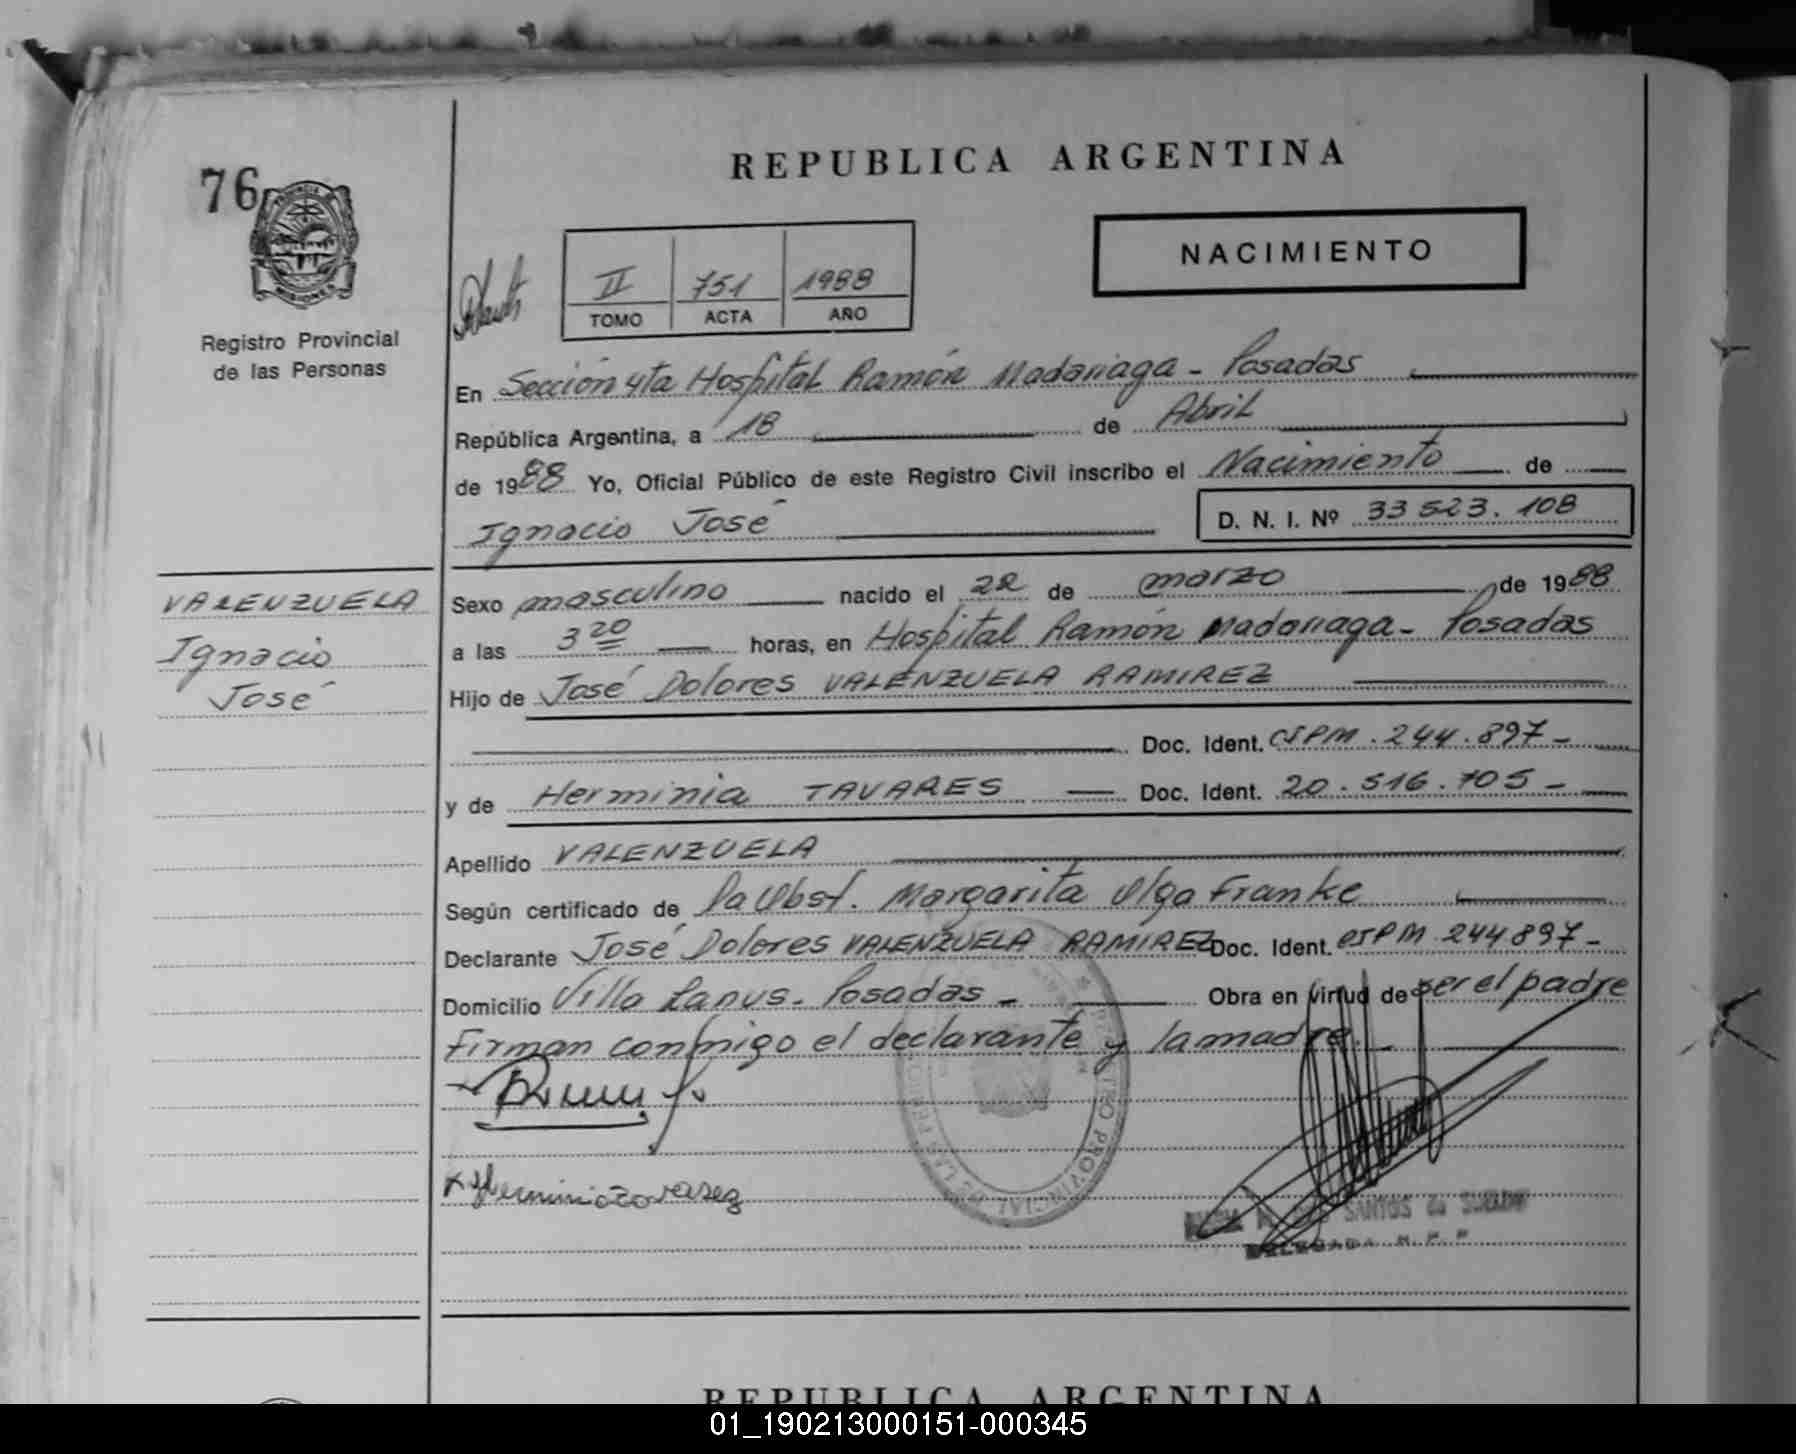 76
PROVINCIA DE
MISIONES
Registro Provincial
de las Personas
REPUBLICA ARGENTINA
NACIMIENTO
II 751 1988
TOMO ACTA AÑO
En Sección 4ta Hospital Ramón Madariaga - Posadas
República Argentina, a 18 de Abril
de 1988 Yo, Oficial Público de este Registro Civil inscribo el Nacimiento de
Ignacio José D. N. I. Nº 33 523.108
VALENZUELA
Ignacio
José
Sexo masculino nacido el 22 de marzo de 1988
a las 3 20 horas, en Hospital Ramón Madariaga - Posadas
Hijo de José Dolores VALENZUELA RAMIREZ
Doc. Ident. CIPM. 244.897-
y de Herminia TAVARES Doc. Ident. 20.516.705-
Apellido VALENZUELA
Según certificado de La Obst. Margarita Olga Franke
Declarante José Dolores VALENZUELA RAMIREZ Doc. Ident. CIPM 244897-
Domicilio Villa Lanus - Posadas - Obra en virtud de ser el padre
Firman conmigo el declarante y la madre.
REGISTRO PROVINCIAL DE LAS PERSONAS
SANTOS de
DELEGADA
REPUBLICA ARGENTINA
01_190213000151-000345